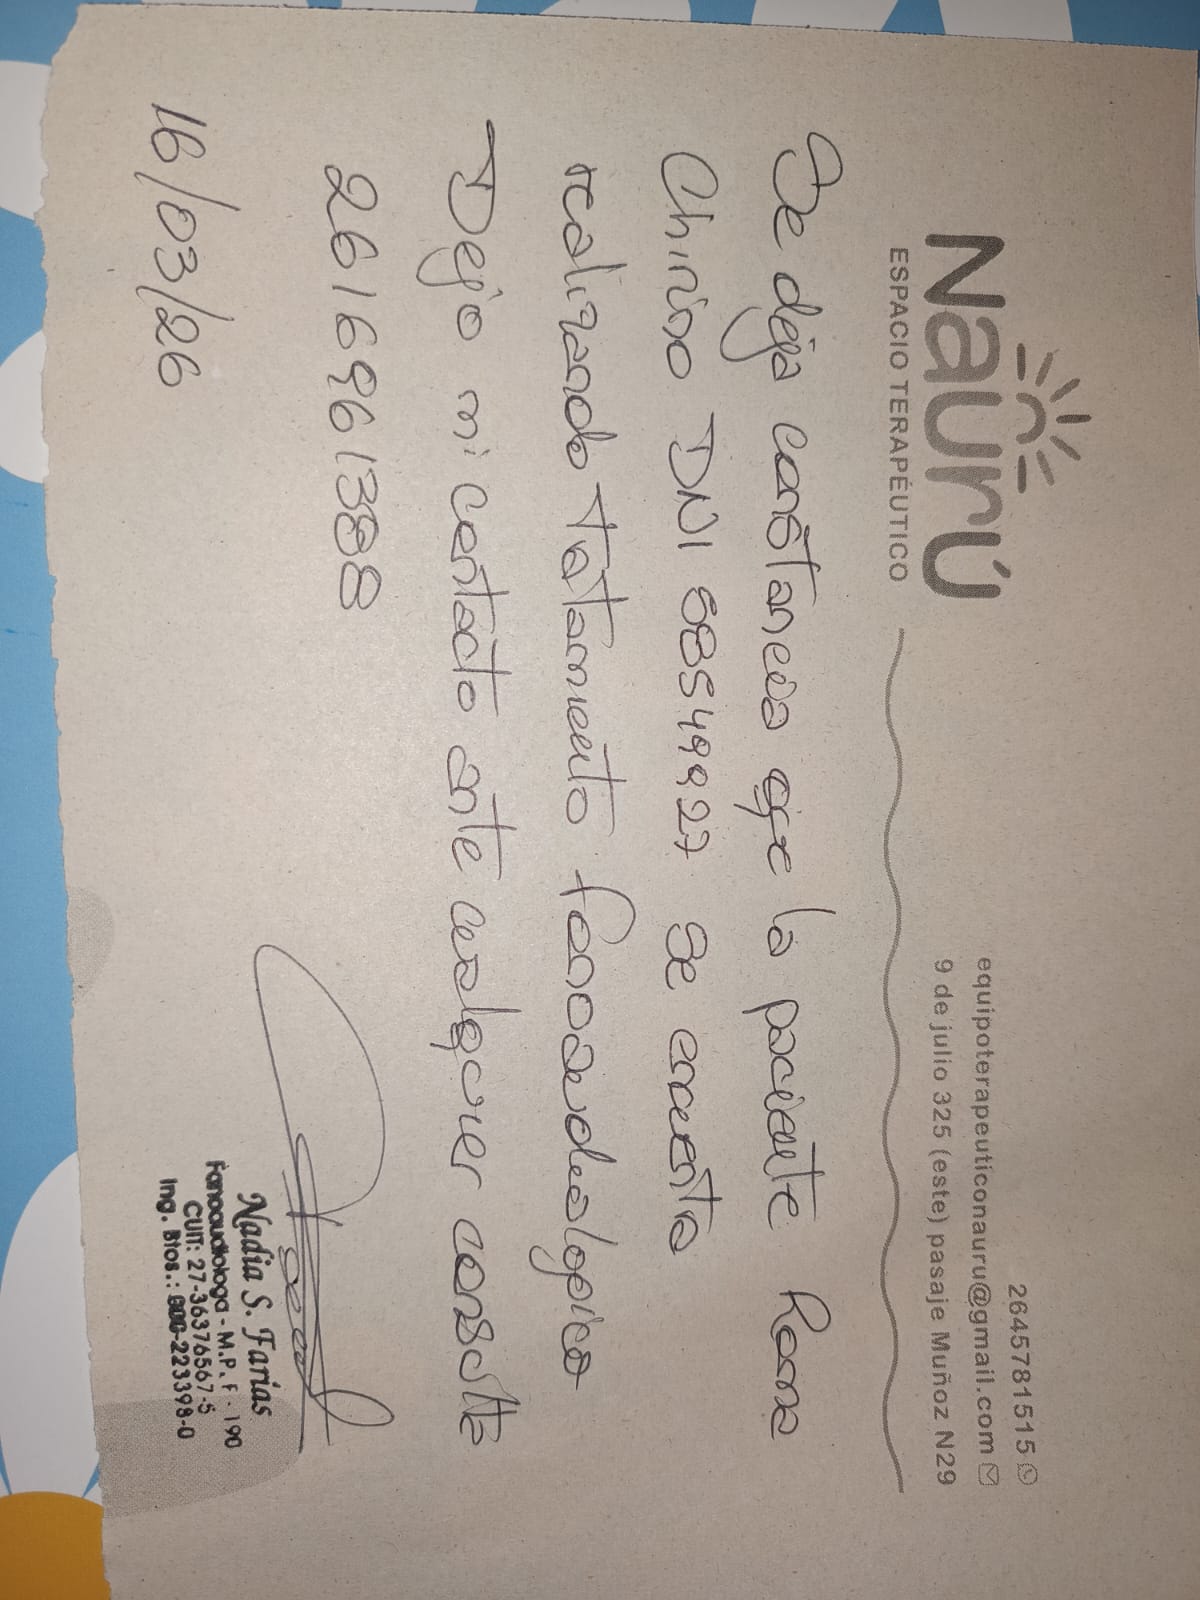 Naurú
ESPACIO TERAPÉUTICO
2645781515
equipoterapeuticonauru@gmail.com
9 de julio 325 (este) pasaje Muñoz N29
Se deja constancia que la paciente Roma
Chirino DNI 58549927 se encuentra
realizando tratamiento fonoaudiologico
Dejo mi contacto ante cualquier consulta
2616961388
16/03/26
Nadia S. Farías
Fonoaudióloga - M.P. F - 190
CUIT: 27-36376567-5
Ing. Btos.: 000-223398-0